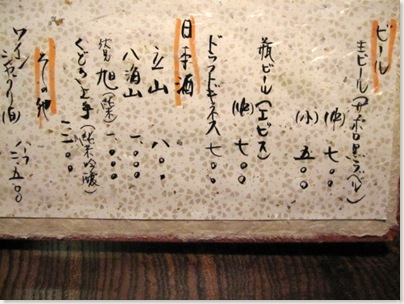 ビール
生ビール(サッポロ黒ラベル)
(中)七〇〇
(小)五〇〇
瓶ビール(エビス)
(中)七〇〇
ドラフトギネス 七〇〇
日本酒
立山 八〇〇
八海山 一、〇〇〇
旭(純米)一、〇〇〇
くどき上手(純米吟醸)
一二〇〇
その他
ワイン